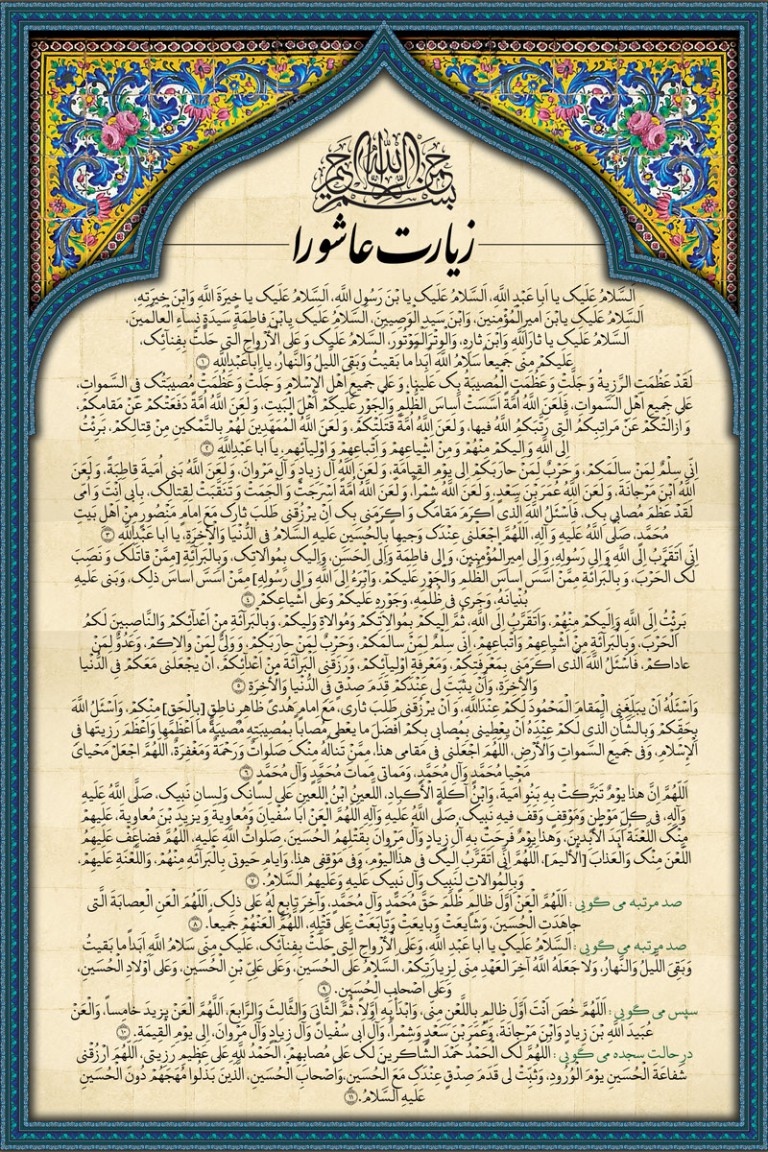 بسم الله الرحمن الرحیم
زیارت عاشورا
اَلسَّلامُ عَلَیْکَ یا اَبا عَبْدِ اللَّهِ، اَلسَّلامُ عَلَیْکَ یا بْنَ رَسُولِ اللَّهِ، اَلسَّلامُ عَلَیْکَ یا خِیَرَةَ اللَّهِ وَابْنَ خِیَرَتِهِ،
اَلسَّلامُ عَلَیْکَ یابْنَ اَمیرِالْمُؤْمِنینَ، وَابْنَ سَیِّدِ الْوَصِیّینَ، اَلسَّلامُ عَلَیْکَ یابْنَ فاطِمَةَ سَیِّدَةِ نِساءِ الْعالَمینَ،
اَلسَّلامُ عَلَیْکَ یا ثارَاللَّهِ وَابْنَ ثارِهِ، وَالْوِتْرَالْمَوْتُورَ، اَلسَّلامُ عَلَیْکَ وَ عَلَی الْاَرْواحِ الَّتی حَلَّتْ بِفِنائِکَ،
عَلَیْکُمْ مِنّی جَمیعا سَلامُ اللَّهِ اَبَداً ما بَقیتُ وَبَقِیَ اللَّیْلُ وَالنَّهارُ، یا اَباعَبْدِاللَّهِ ١
لَقَدْ عَظُمَتِ الرَّزِیَّةُ وَ جَلَّتْ وَ عَظُمَتِ الْمُصیبَةُ بِکَ عَلَیْنا، وَ عَلی جَمیعِ اَهْلِ الْاِسْلامِ وَ جَلَّتْ وَ عَظُمَتْ مُصیبَتُکَ فِی السَّمواتِ،
عَلی جَمیعِ اَهْلِ السَّمواتِ، فَلَعَنَ اللَّهُ اُمَّةً اَسَّسَتْ اَساسَ الظُّلْمِ وَالْجَوْرِ عَلَیْکُمْ اَهْلَ الْبَیْتِ، وَ لَعَنَ اللَّهُ اُمَّةً دَفَعَتْکُمْ عَنْ مَقامِکُمْ،
وَ اَزالَتْکُمْ عَنْ مَراتِبِکُمُ الَّتی رَتَّبَکُمُ اللَّهُ فیها، وَ لَعَنَ اللَّهُ اُمَّةً قَتَلَتْکُمْ، وَ لَعَنَ اللَّهُ الْمُمَهِّدینَ لَهُمْ بِالتَّمْکینِ مِنْ قِتالِکُمْ، بَرِئْتُ
اِلَی اللَّهِ وَ اِلَیْکُمْ مِنْهُمْ وَ مِنْ اَشْیاعِهِمْ وَ اَتْباعِهِمْ وَ اَوْلِیائِهِم، یا اَبا عَبْدِاللَّهِ ٢
اِنّی سِلْمٌ لِمَنْ سالَمَکُمْ، وَ حَرْبٌ لِمَنْ حارَبَکُمْ اِلی یَوْمِ الْقِیامَةِ، وَ لَعَنَ اللَّهُ آلَ زِیادٍ وَ آلَ مَرْوانَ، وَ لَعَنَ اللَّهُ بَنی اُمَیَّةَ قاطِبَةً، وَ لَعَنَ
اللَّهُ ابْنَ مَرْجانَةَ، وَ لَعَنَ اللَّهُ عُمَرَ بْنَ سَعْدٍ، وَ لَعَنَ اللَّهُ شِمْراً، وَ لَعَنَ اللَّهُ اُمَّةً اَسْرَجَتْ وَ اَلْجَمَتْ وَ تَنَقَّبَتْ لِقِتالِکَ، بِاَبی اَنْتَ وَ اُمّی
لَقَدْ عَظُمَ مُصابی بِکَ، فَاَسْئَلُ اللَّهَ الَّذی اَکْرَمَ مَقامَکَ وَ اَکْرَمَنی بِکَ اَنْ یَرْزُقَنی طَلَبَ ثارِکَ مَعَ اِمامٍ مَنْصُورٍ مِنْ اَهْلِ بَیْتِ
مُحَمَّدٍ، صَلَّی اللَّهُ عَلَیْهِ وَ آلِهِ، اَللّهُمَّ اجْعَلْنی عِنْدَکَ وَجیهاً بِالْحُسَیْنِ عَلَیْهِ السَّلامُ فِی الدُّنْیا وَ الْآخِرَةِ، یا اَبا عَبْدِاللَّهِ ٣
اِنّی اَتَقَرَّبُ اِلَی اللَّهِ وَ اِلی رَسُولِهِ، وَ اِلی اَمیرِالْمُؤْمِنینَ، وَ اِلی فاطِمَةَ وَاِلَی الْحَسَنِ، وَاِلَیْکَ بِمُوالاتِکَ، وَبِالْبَرائَةِ [مِمَّنْ قاتَلَکَ وَ نَصَبَ
لَکَ الْحَرْبَ، وَ بِالْبَرائَةِ مِمَّنْ اَسَّسَ اَساسَ الظُّلْمِ وَالْجَوْرِ عَلَیْکُمْ، وَاَبْرَءُ اِلَی اللَّهِ وَ اِلی رَسُولِهِ] مِمَّنْ اَسَّسَ اَساسَ ذلِکَ، وَبَنی عَلَیْهِ
بُنْیانَهُ، وَجَری فی ظُلْمِهِ، وَجَوْرِهِ عَلَیْکُمْ وَعَلی اَشْیاعِکُمْ ٤
بَرِئْتُ اِلَی اللَّهِ وَاِلَیْکُمْ مِنْهُمْ، وَاَتَقَرَّبُ اِلَی اللَّهِ، ثُمَّ اِلَیْکُمْ بِمُوالاتِکُمْ وَمُوالاةِ وَلِیِّکُمْ، وَبِالْبَرآئَةِ مِنْ اَعْدائِکُمْ وَالنّاصِبینَ لَکُمُ
الْحَرْبَ، وَبِالْبَرآئَةِ مِنْ اَشْیاعِهِمْ وَاَتْباعِهِمْ، اِنّی سِلْمٌ لِمَنْ سالَمَکُمْ، وَحَرْبٌ لِمَنْ حارَبَکُمْ، وَ وَلِیٌّ لِمَنْ والاکُمْ، وَعَدُوٌّ لِمَنْ
عاداکُمْ، فَاَسْئَلُ اللَّهَ الَّذی اَکْرَمَنی بِمَعْرِفَتِکُمْ، وَمَعْرِفَةِ اَوْلِیائِکُمْ، وَرَزَقَنِی الْبَرآئَةَ مِنْ اَعْدائِکُمْ، اَنْ یَجْعَلَنی مَعَکُمْ فِی الدُّنْیا
وَالْآخِرَةِ، وَاَنْ یُثَبِّتَ لی عِنْدَکُمْ قَدَمَ صِدْقٍ فِی الدُّنْیا وَالْآخِرَةِ ٥
وَاَسْئَلُهُ اَنْ یُبَلِّغَنِی الْمَقامَ الْمَحْمُودَ لَکُمْ عِنْدَاللَّهِ، وَ اَنْ یَرْزُقَنی طَلَبَ ثاری، مَعَ اِمامِ هُدیً ظاهِرٍ ناطِقٍ [بِالْحَقِ] مِنْکُمْ، وَ اَسْئَلُ اللَّهَ
بِحَقِّکُمْ وَبِالشَّأْنِ الَّذی لَکُمْ عِنْدَهُ اَنْ یُعْطِیَنی بِمُصابی بِکُمْ اَفْضَلَ ما یُعْطی مُصاباً بِمُصیبَتِهِ مُصیبَةً ما اَعْظَمَها وَاَعْظَمَ رَزِیَّتَها فِی
الْاِسْلامِ، وَفی جَمیعِ السَّمواتِ وَالْاَرْضِ، اَللّهُمَّ اجْعَلْنی فی مَقامی هذا، مِمَّنْ تَنالُهُ مِنْکَ صَلَواتٌ وَرَحْمَةٌ وَمَغْفِرَةٌ، اَللّهُمَّ اجْعَلْ مَحْیایَ
مَحْیا مُحَمَّدٍ وَآلِ مُحَمَّدٍ، وَمَماتی مَماتَ مُحَمَّدٍ وَآلِ مُحَمَّدٍ ٦
اَللّهُمَّ اِنَّ هذا یَوْمٌ تَبَرَّکَتْ بِهِ بَنُو اُمَیَّةَ، وَابْنُ آکِلَةِ الْاَکْبادِ، اللَّعینُ ابْنُ اللَّعینِ عَلی لِسانِکَ وَلِسانِ نَبِیِّکَ، صَلَّی اللَّهُ عَلَیْهِ
وَآلِهِ، فی کُلِّ مَوْطِنٍ وَمَوْقِفٍ وَقَفَ فیهِ نَبِیُّکَ، صَلَّی اللَّهُ عَلَیْهِ وَآلِهِ، اَللّهُمَّ الْعَنْ اَبا سُفْیانَ وَمُعاوِیَةَ وَ یَزیدَ بْنَ مُعاوِیَةَ، عَلَیْهِمْ
مِنْکَ اللَّعْنَةُ اَبَدَ الْآبِدینَ، وَهذا یَوْمٌ فَرِحَتْ بِهِ آلُ زِیادٍ وَآلُ مَرْوانَ بِقَتْلِهِمُ الْحُسَیْنَ، صَلَواتُ اللَّهِ عَلَیْهِ، اَللّهُمَّ فَضاعِفْ عَلَیْهِمُ
اللَّعْنَ مِنْکَ وَالْعَذابَ [الْاَلیمَ]، اَللّهُمَّ اِنّی اَتَقَرَّبُ اِلَیْکَ فی هذَاالْیَوْمِ، وَفی مَوْقِفی هذا، وَاَیّامِ حَیوتی بِالْبَرآئَةِ مِنْهُمْ، وَاللَّعْنَةِ عَلَیْهِمْ،
وَبِالْمُوالاتِ لِنَبِیِّکَ وَآلِ نَبِیِّکَ عَلَیْهِ وَعَلَیْهِمُ السَّلامُ. ٧
صد مرتبه می گویی : اَللّهُمَّ الْعَنْ اَوَّلَ ظالِمٍ ظَلَمَ حَقَّ مُحَمَّدٍ وَآلِ مُحَمَّدٍ، وَآخِرَ تابِعٍ لَهُ عَلی ذلِکَ، اَللّهُمَّ الْعَنِ الْعِصابَةَ الَّتی
جاهَدَتِ الْحُسَیْنَ، وَشایَعَتْ وَبایَعَتْ وَتابَعَتْ عَلی قَتْلِهِ، اَللّهُمَّ الْعَنْهُمْ جَمیعاً. ٨
صد مرتبه می گویی : اَلسَّلامُ عَلَیْکَ یا اَبا عَبْدِ اللَّهِ، وَعَلَی الْاَرْواحِ الَّتی حَلَّتْ بِفِنائِکَ، عَلَیْکَ مِنّی سَلامُ اللَّهِ اَبَداً ما بَقیتُ
وَبَقِیَ اللَّیْلُ وَالنَّهارُ، وَلا جَعَلَهُ اللَّهُ آخِرَ الْعَهْدِ مِنّی لِزِیارَتِکُمْ، اَلسَّلامُ عَلَی الْحُسَیْنِ، وَعَلی عَلِیِّ بْنِ الْحُسَیْنِ، وَعَلی اَوْلادِ الْحُسَیْنِ،
وَعَلی اَصْحابِ الْحُسَیْنِ. ٩
سپس می گویی : اَللّهُمَّ خُصَّ اَنْتَ اَوَّلَ ظالِمٍ بِاللَّعْنِ مِنّی، وَابْدَأْ بِهِ اَوَّلاً، ثُمَّ الثّانِیَ وَالثّالِثَ وَالرّابِعَ، اَللّهُمَّ الْعَنْ یَزیدَ خامِساً، وَالْعَنْ
عُبَیْدَ اللَّهِ بْنَ زِیادٍ وَابْنَ مَرْجانَةَ، وَعُمَرَ بْنَ سَعْدٍ وَشِمْراً، وَآلَ اَبی سُفْیانَ وَآلَ زِیادٍ وَآلَ مَرْوانَ، اِلی یَوْمِ الْقِیمَةِ. ١٠
در حالت سجده می گویی : اَللّهُمَّ لَکَ الْحَمْدُ حَمْدَ الشّاکِرینَ لَکَ عَلی مُصابِهِمْ، اَلْحَمْدُ لِلَّهِ عَلی عَظیمِ رَزِیَّتی، اَللّهُمَّ ارْزُقْنی
شَفاعَةَ الْحُسَیْنِ یَوْمَ الْوُرُودِ، وَثَبِّتْ لی قَدَمَ صِدْقٍ عِنْدَکَ مَعَ الْحُسَیْنِ، وَاَصْحابِ الْحُسَیْنِ، الَّذینَ بَذَلُوا مُهَجَهُمْ دُونَ الْحُسَیْنِ
عَلَیْهِ السَّلامُ. ١١